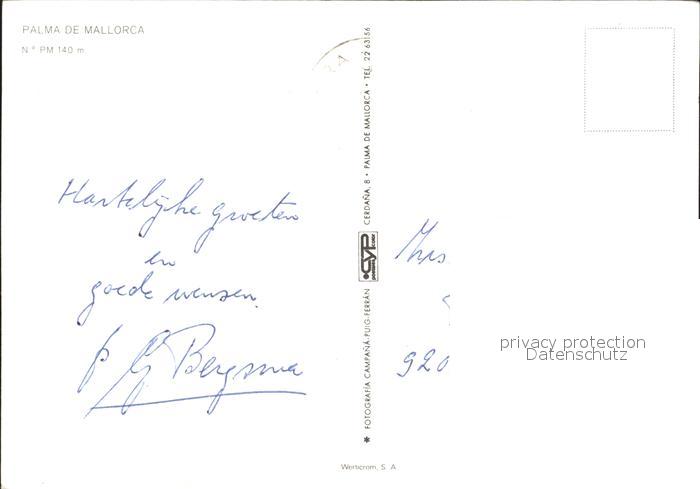 PALMA DE MALLORCA
N° PM 140 m
Hartelijke groeten
en
goede wensen.
Bergsma
* FOTOGRAFIA CAMPAÑÁ-PUIG-FERRÁN
CYP
CERDAÑA, 8 • PALMA DE MALLORCA • TEL. 22 63156
920
privacy protection
Datenschutz
Werticrom, S. A.